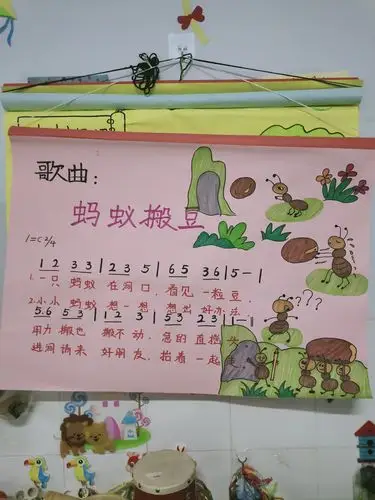 歌曲:
蚂蚁搬豆
1=C 2/4
1 2 3 3 | 2 3 5 | 6 5 3 6 | 5 - |
1.一只 蚂蚁 在洞口, 看见一粒豆,
2.小小 蚂蚁 想一想 想出好办法
5.6 5 3 | 1 2 3 | 5 3 2 3 | 1 - |
用力 搬也 搬不动, 急的直摇头
进洞 请来 好朋友, 抬着一起
???